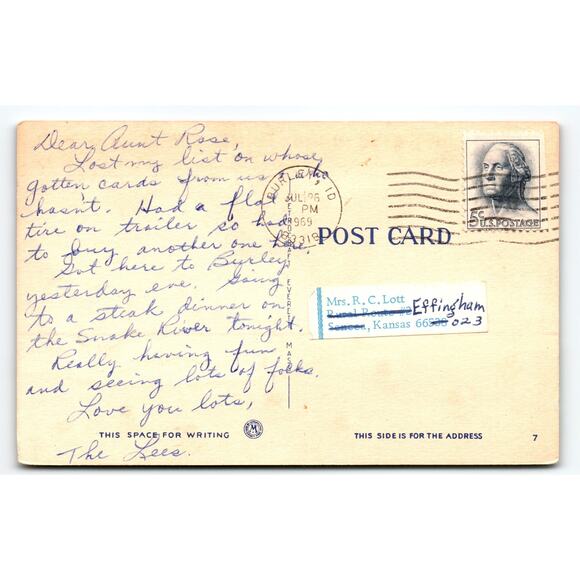 Dear Aunt Rose,
Lost my list on whose
gotten cards from us & who
hasn't. Had a flat
tire on trailer so had
to buy another one here.
Got here to Burley
yesterday eve. Going
to a steak dinner on
the Snake River tonight.
Really having fun
and seeing lots of folks.
Love you lots,
The Lees.
THIS SPACE FOR WRITING
BURLEY, ID
JUL 26
PM
1969
83318
5¢ U.S. POSTAGE
POST CARD
Mrs. R. C. Lott
Rural Route #2 Effingham
Seneca, Kansas 66538 023
THIS SIDE IS FOR THE ADDRESS
7